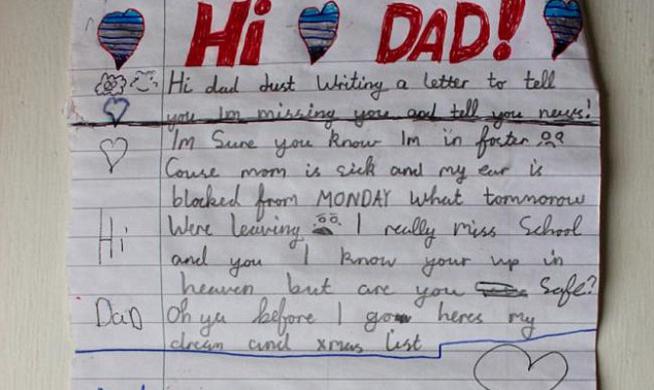 Hi DAD!
Hi dad Just Writing a letter to tell
you Im missing you and tell you news!
Im Sure you know Im in foster
Couse mom is sick and my ear is
blocked from MONDAY What tommorow
Were leaving I really miss School
and you I know your up in
heaven but are you Safe?
Oh ya before I go heres my
dream and xmas list
Hi
Dad